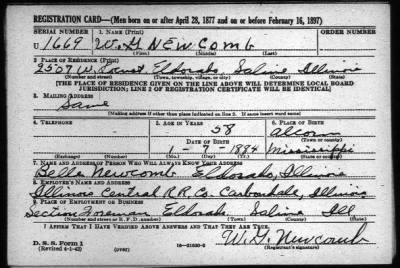 REGISTRATION CARD—(Men born on or after April 28, 1877 and on or before February 16, 1897)
SERIAL NUMBER 1. NAME (Print)
U 1669 W. G NEWCOMB
(First) (Middle) (Last)
2. PLACE OF RESIDENCE (Print)
2507 W. Eldorado Saline Illinois
(Number and street) (Town, township, village, or city) (County) (State)
[THE PLACE OF RESIDENCE GIVEN ON THE LINE ABOVE WILL DETERMINE LOCAL BOARD
JURISDICTION; LINE 2 OF REGISTRATION CERTIFICATE WILL BE IDENTICAL]
3. MAILING ADDRESS
Same
[Mailing address if other than place indicated on line 2. If same insert word same]
4. TELEPHONE 5. AGE IN YEARS 6. PLACE OF BIRTH
58 Alcorn
DATE OF BIRTH (Town or county)
1-7-1884 Mississippi
(Exchange) (Number) (Mo.) (Day) (Yr.) (State or country)
7. NAME AND ADDRESS OF PERSON WHO WILL ALWAYS KNOW YOUR ADDRESS
Belle Newcomb Eldorado, Illinois
8. EMPLOYER'S NAME AND ADDRESS
Illinois Central R.R. Co. Carbondale, Illinois
9. PLACE OF EMPLOYMENT OR BUSINESS
Section Foreman Eldorado Saline Ill
(Number and street or R. F. D. number) (Town) (County) (State)
I AFFIRM THAT I HAVE VERIFIED ABOVE ANSWERS AND THAT THEY ARE TRUE.
D. S. S. Form 1
(Revised 4-1-42) (over) 16—21630-2
W. G. Newcomb
(Registrant's signature)